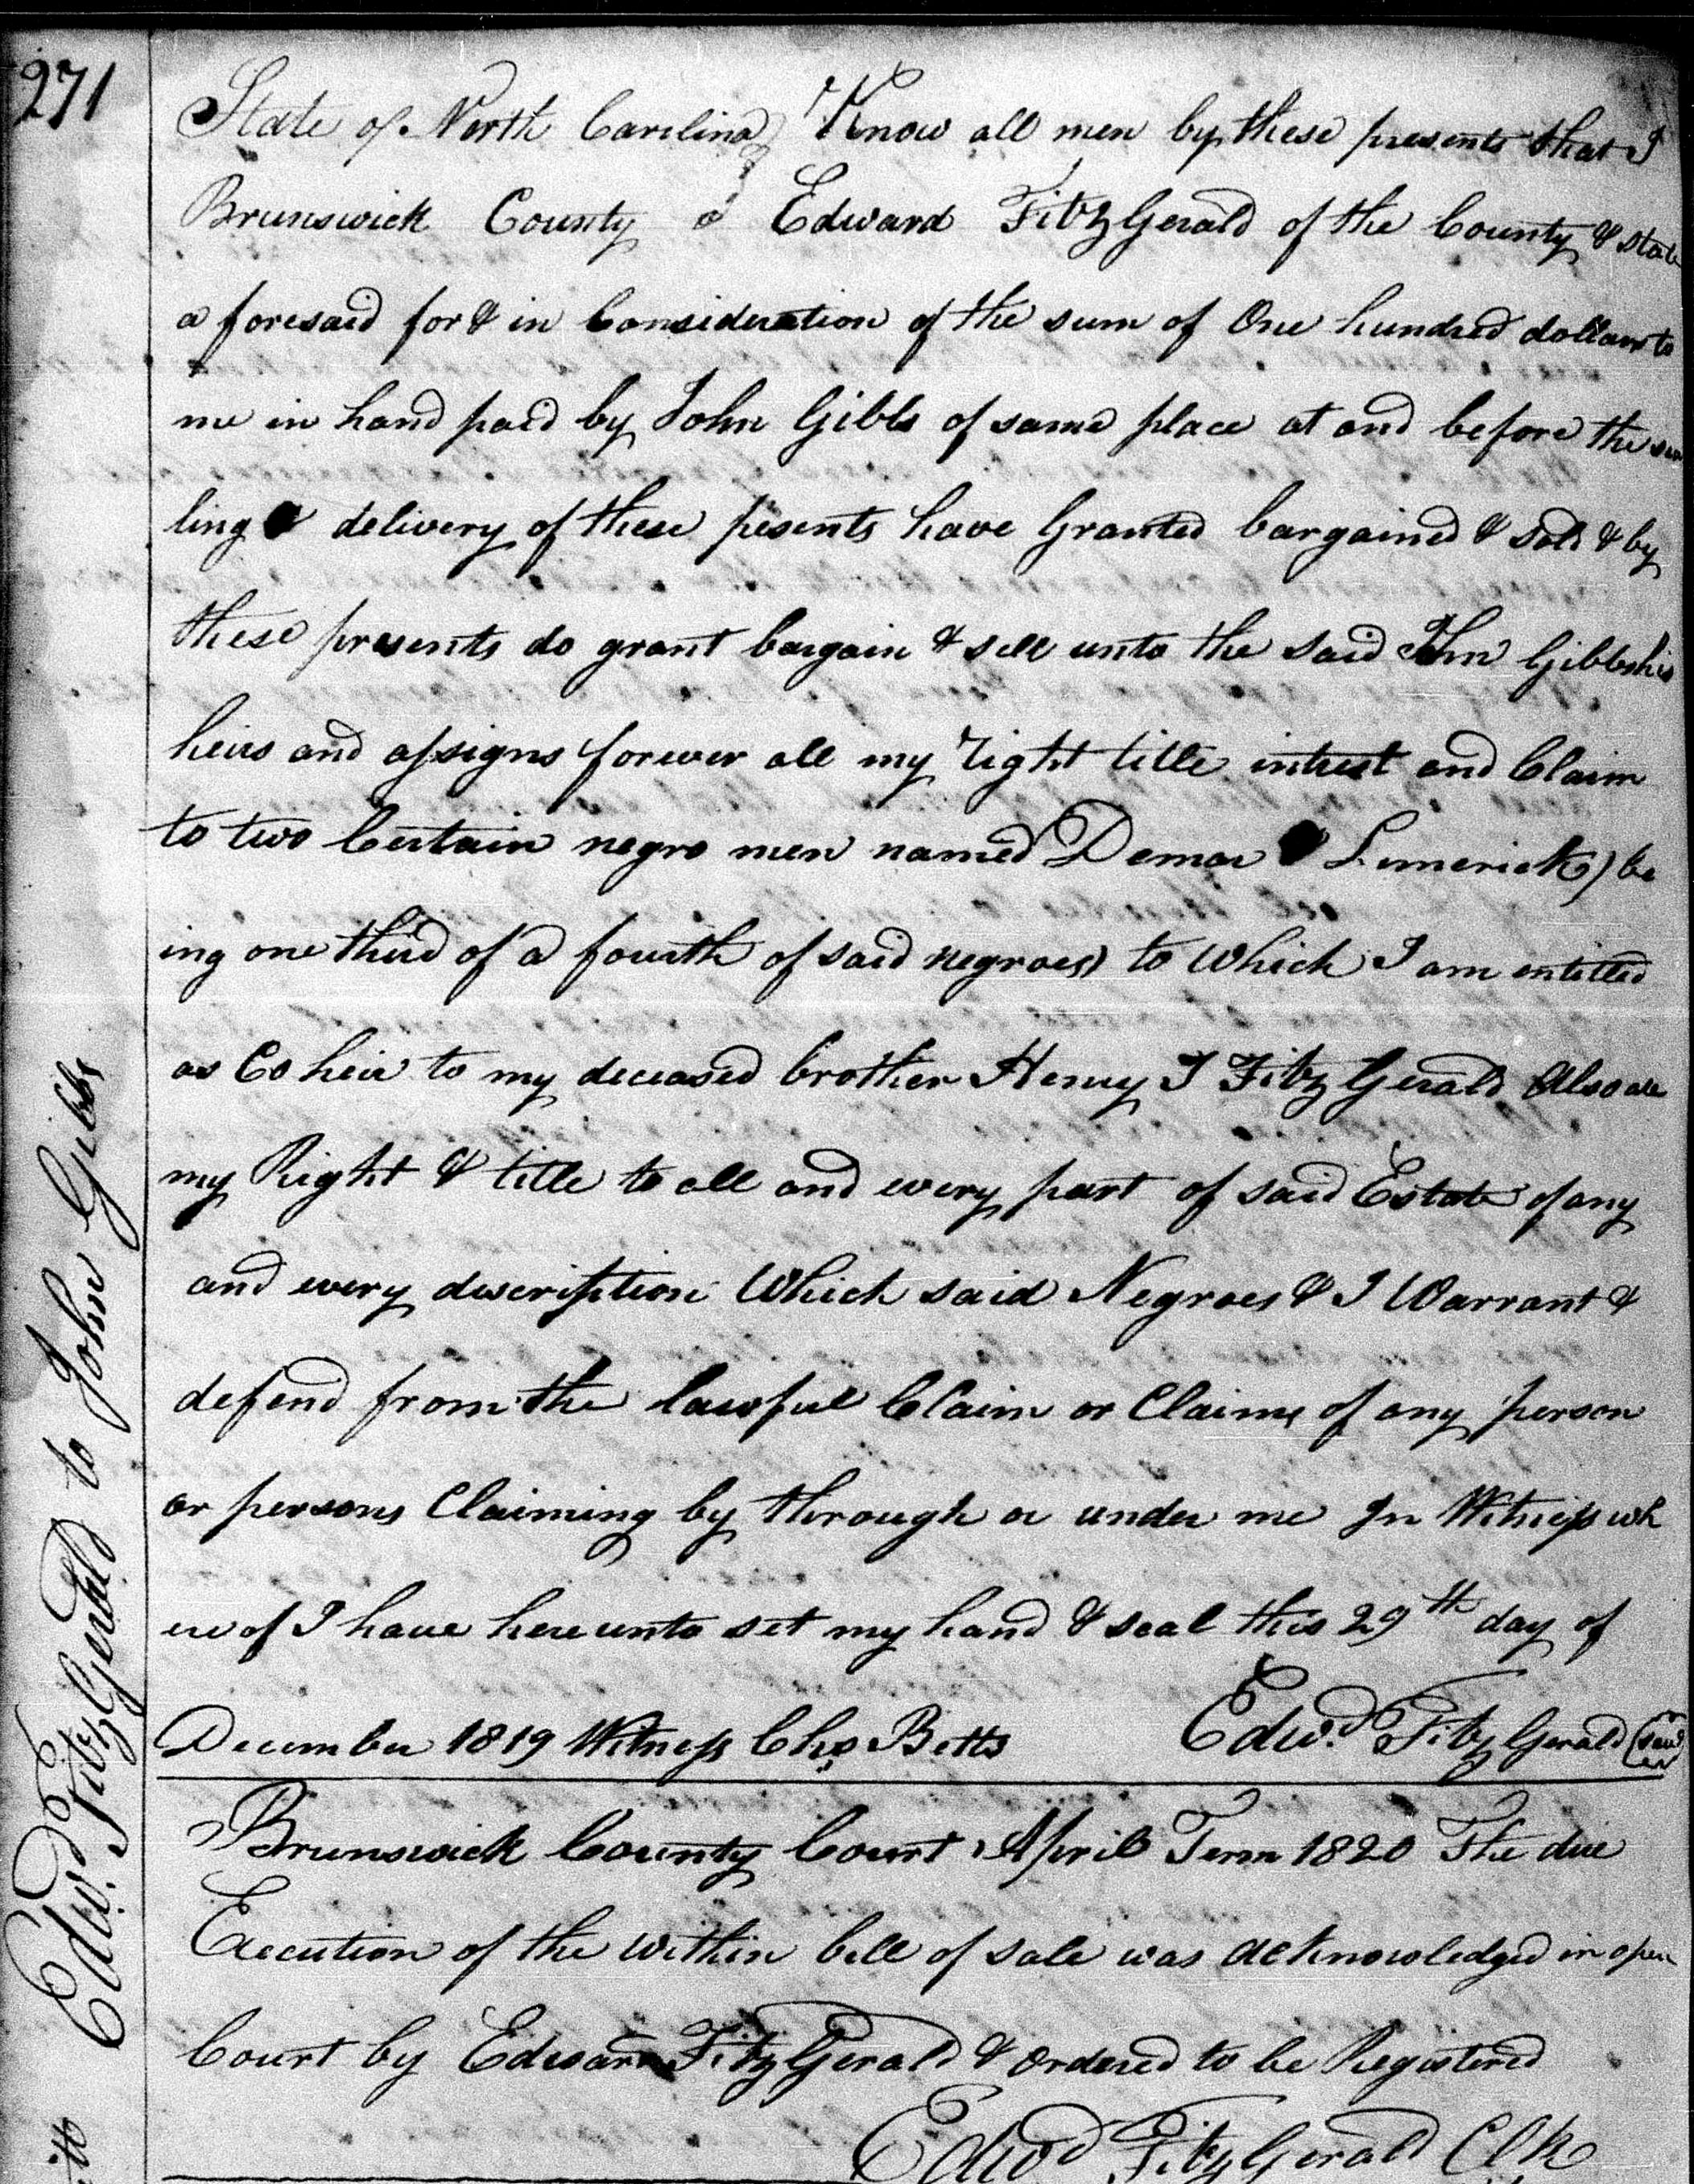 271
State of North Carolina Know all men by these presents that I
Brunswick County Edward FitzGerald of the County & state
a foresaid for & in Consideration of the sum of One hundred dollars to
me in hand paid by John Gibbs of same place at and before the
ling & delivery of these pesents have Granted bargained & sold & by
these presents do grant bargain & sell unto the said John Gibbs his
heirs and assigns forever all my right title intrest and Claim
to two Certain negro men named Demar & Limerick) be
ing one third of a fourth of said negroes) to Which I am entitled
as Co heir to my deceased brother Henry J FitzGerald Also all
my Right & title to all and every part of said Estate of any
and every description Which said Negroes & I Warrant &
defend from the lawful Claim or Claims of any person
or persons Claiming by through or under me In Witness wh
ereof I have hereunto set my hand & seal this 29th day of
December 1819 Witness Chs Betts Edwd. FitzGerald (seal
Brunswick County Court April Term 1820 The due
Execution of the within bill of sale was acknowledged in open
Court by Edward FitzGerald & ordered to be Registered
Edwd FitzGerald Clk
Edwd. FitzGerald to John Gibbs